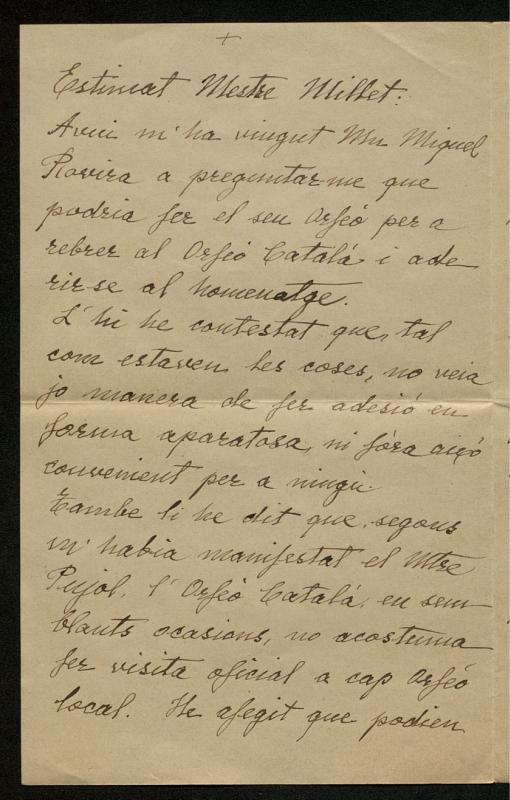 +
Estimat Mestre Millet:
Avui m'ha vingut Mn Miquel
Rovira a preguntar-me que
podria fer el seu Orfeó per a
rebrer al Orfeó Catalá i ade
rir-se al homenatge.
L'hi he contestat que, tal
com estaven les coses, no veia
jo manera de fer adesió en
forma aparatosa, ni fóra aixó
convenient per a ningú.
Tambe li he dit que, segons
m'habia manifestat el Mtre
Pujol, l'Orfeó Catalá, en sem-
blants ocasions, no acostuma
fer visita oficial a cap Orfeó
local. He afegit que podien